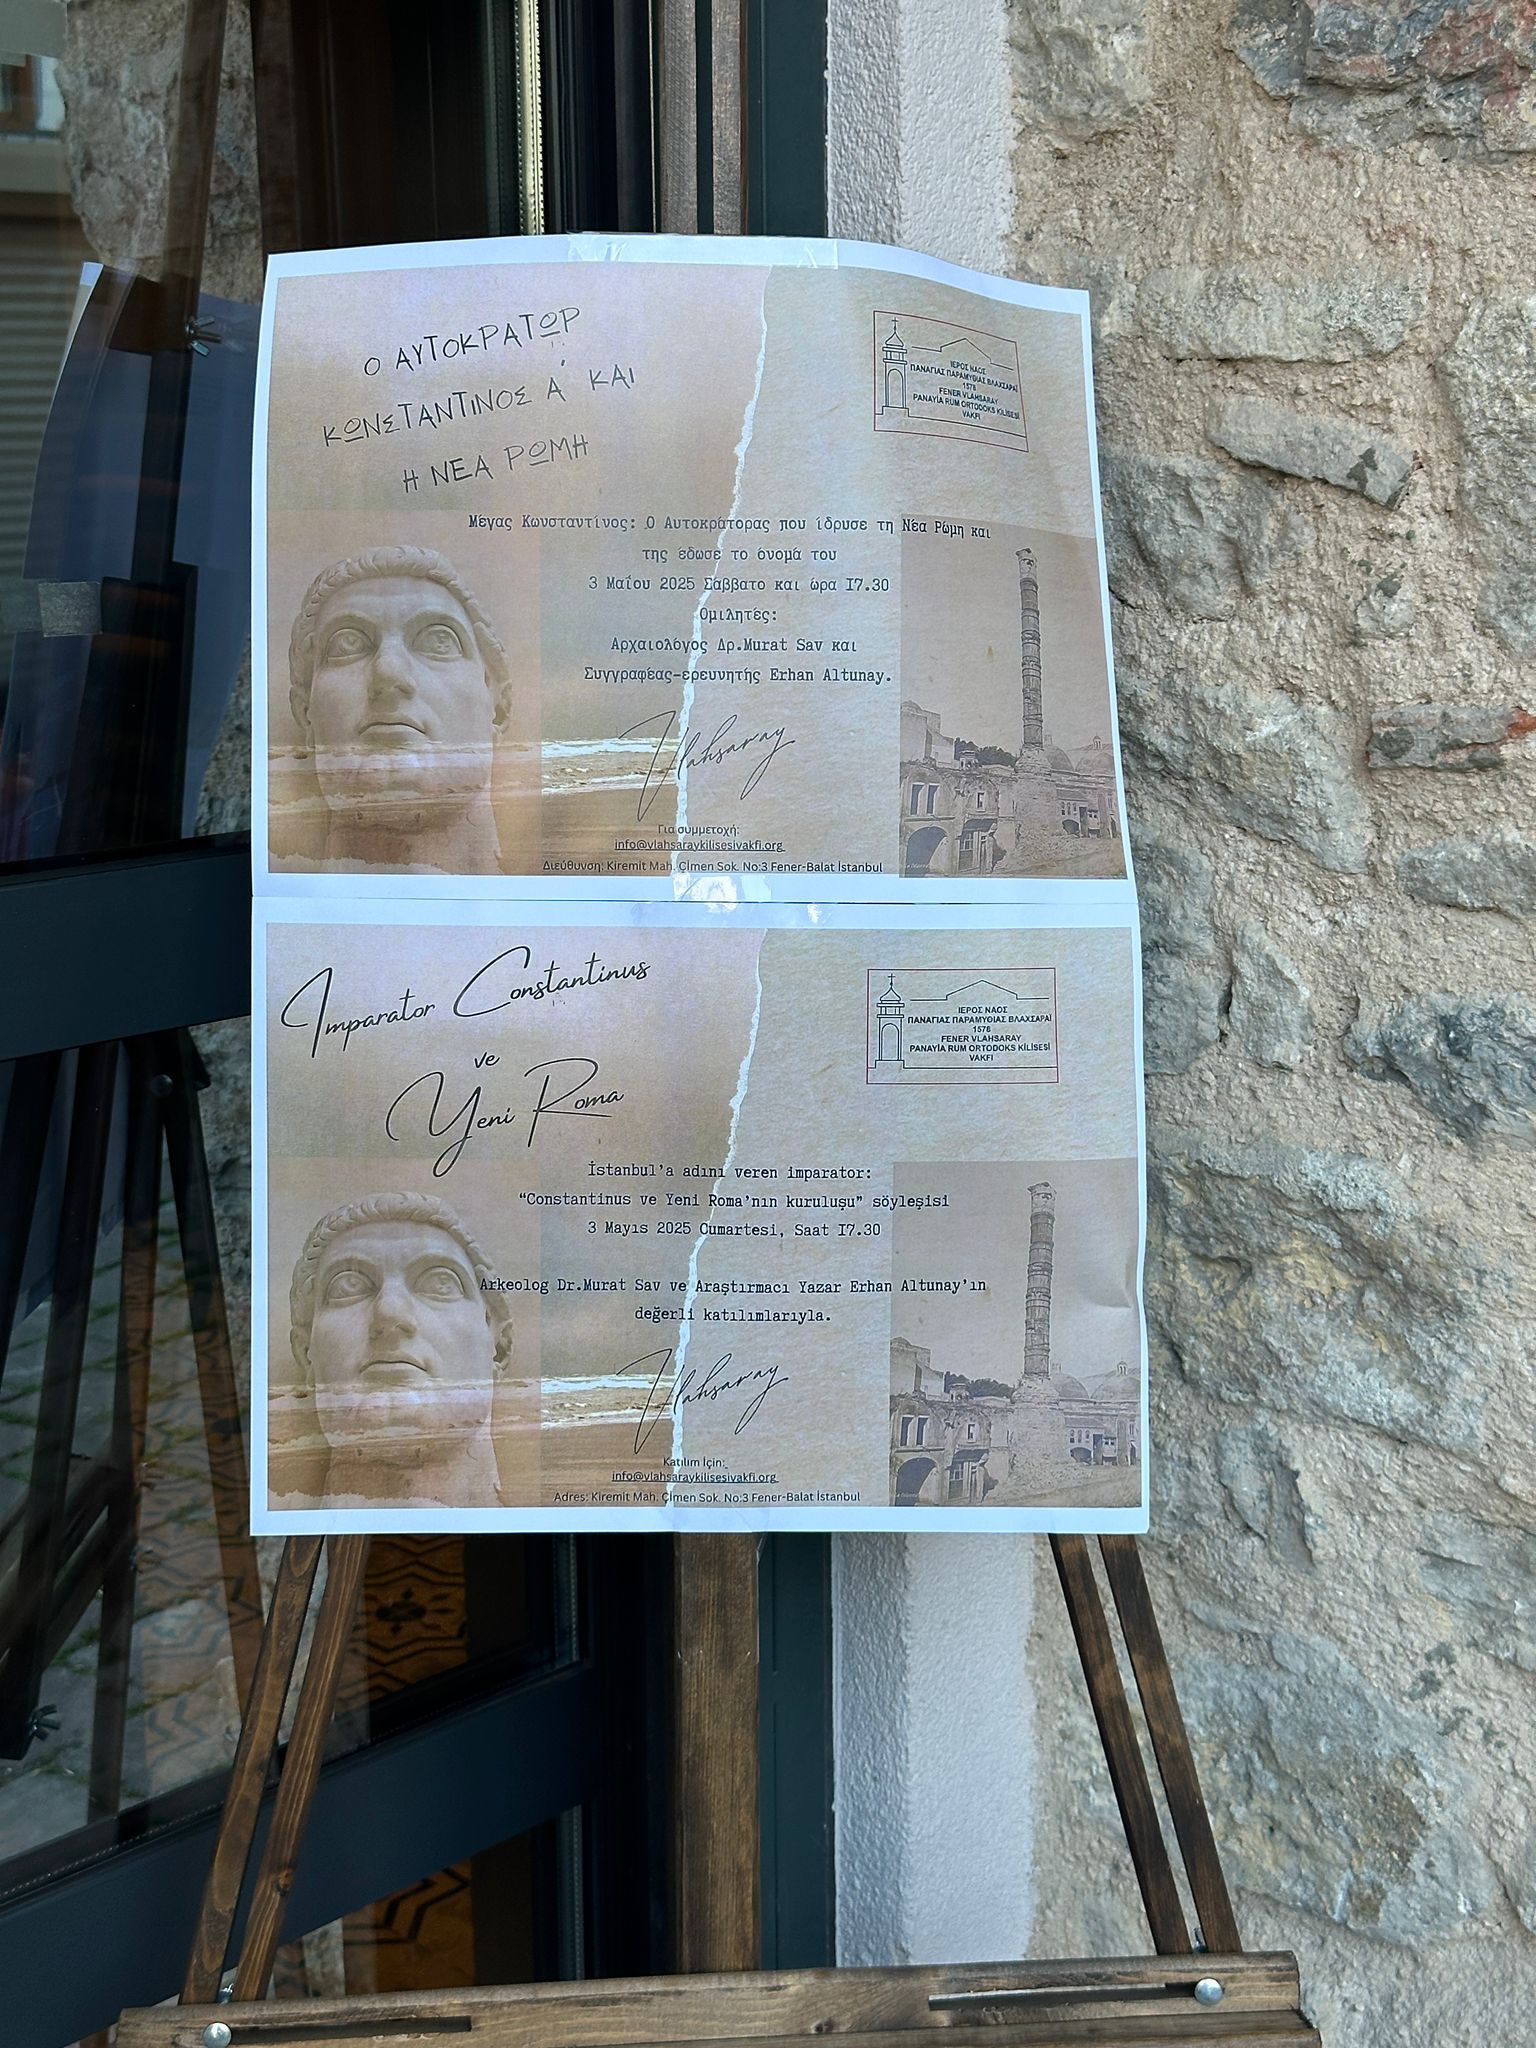 Ο ΑΥΤΟΚΡΑΤΩΡ
ΚΩΝΣΤΑΝΤΙΝΟΣ Α΄ ΚΑΙ
Η ΝΕΑ ΡΩΜΗ
ΙΕΡΟΣ ΝΑΟΣ
ΠΑΝΑΓΙΑΣ ΠΑΡΑΜΥΘΙΑΣ ΒΛΑΧΣΑΡΑΪ
1578
FENER VLAHSARAY
PANAYİA RUM ORTODOKS KİLİSESİ
VAKFI
Μέγας Κωνσταντίνος: Ο Αυτοκράτορας που ίδρυσε τη Νέα Ρώμη και
της έδωσε το όνομά του
3 Μαΐου 2025 Σάββατο και ώρα 17.30
Ομιλητές:
Αρχαιολόγος Δρ.Murat Sav και
Συγγραφέας-ερευνητής Erhan Altunay.
Vlahsaray
Για συμμετοχή:
info@vlahsaraykilisesivakfi.org
Διεύθυνση: Kiremit Mah. Çimen Sok. No:3 Fener-Balat İstanbul
Imparator Constantinus
ve
Yeni Roma
ΙΕΡΟΣ ΝΑΟΣ
ΠΑΝΑΓΙΑΣ ΠΑΡΑΜΥΘΙΑΣ ΒΛΑΧΣΑΡΑΪ
1578
FENER VLAHSARAY
PANAYİA RUM ORTODOKS KİLİSESİ
VAKFI
İstanbul'a adını veren imparator:
“Constantinus ve Yeni Roma'nın kuruluşu” söyleşisi
3 Mayıs 2025 Cumartesi, Saat 17.30
Arkeolog Dr.Murat Sav ve Araştırmacı Yazar Erhan Altunay'ın
değerli katılımlarıyla.
Vlahsaray
Katılım İçin:
info@vlahsaraykilisesivakfi.org
Adres: Kiremit Mah. Çimen Sok. No:3 Fener-Balat İstanbul